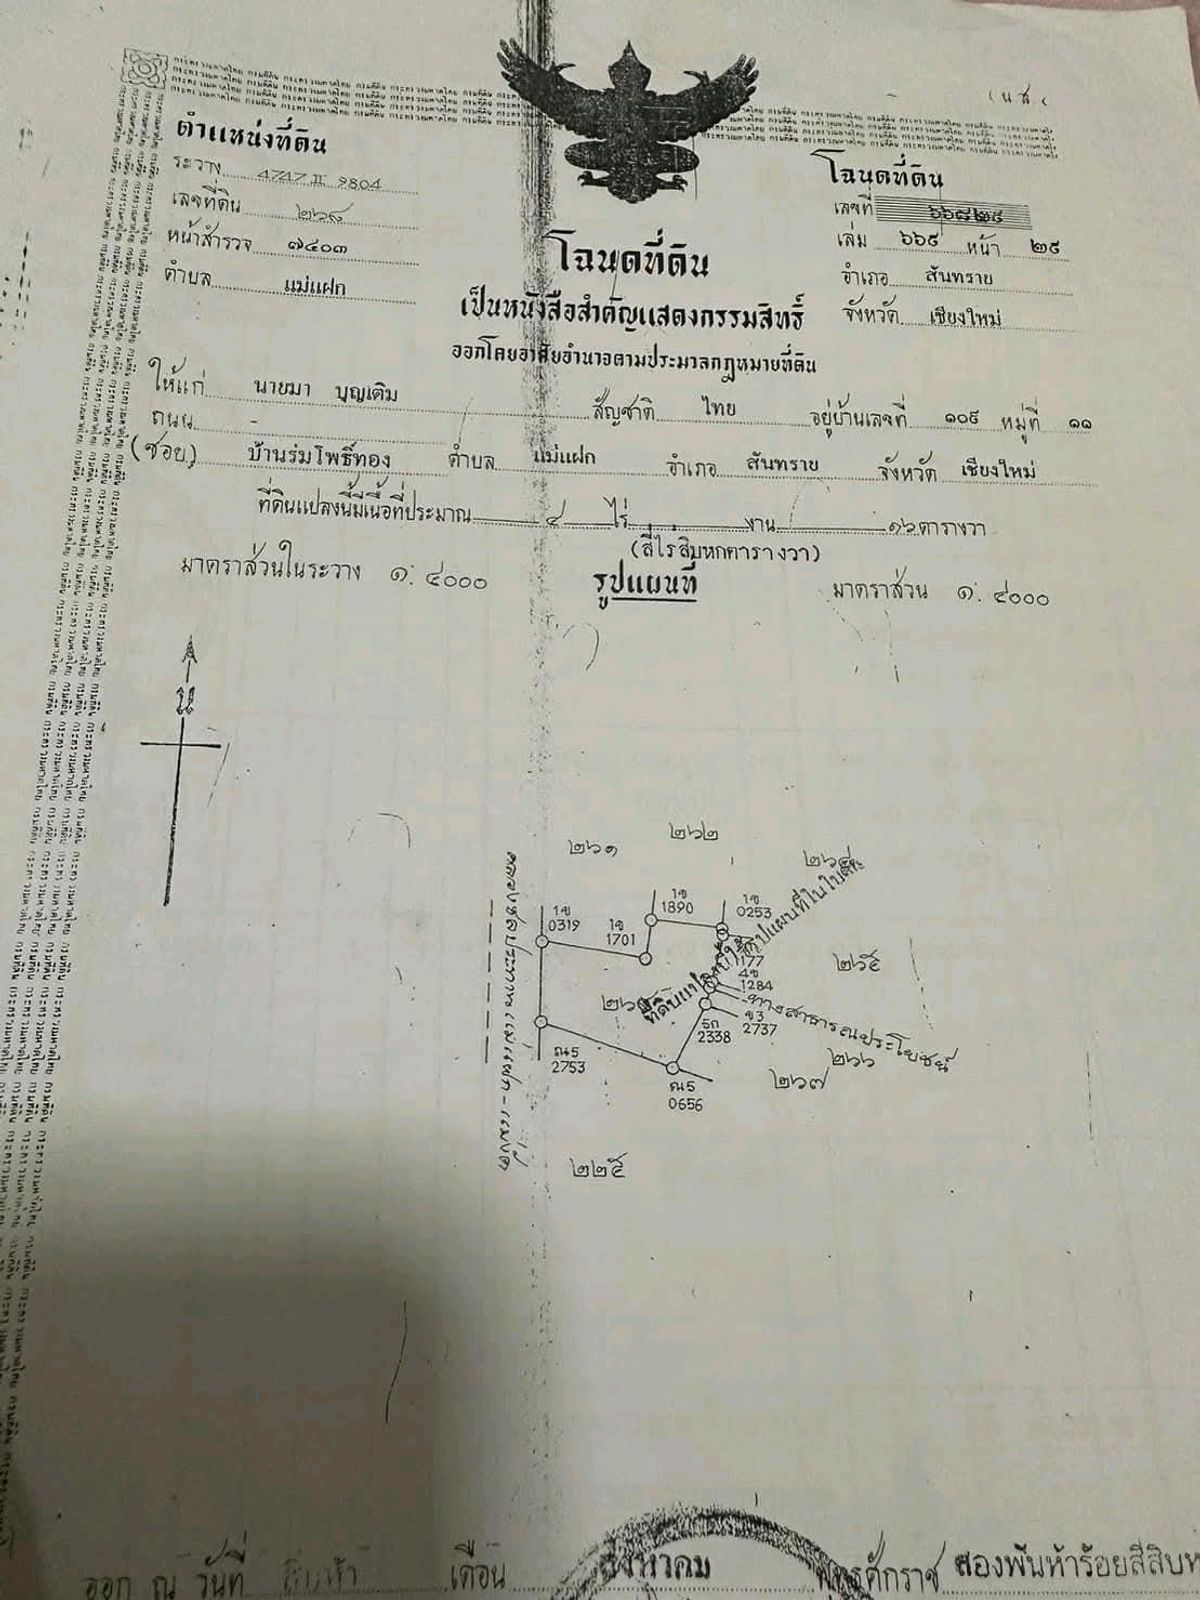 (น.ส.
ตำแหน่งที่ดิน
ระวาง 4747 II 9804
เลขที่ดิน ๒๖๘
หน้าสำรวจ ๗๔๐๓
ตำบล แม่แฝก
โฉนดที่ดิน
เลขที่ ๖๖๘๒๙
เล่ม ๖๖๙ หน้า ๒๙
อำเภอ สันทราย
จังหวัด เชียงใหม่
โฉนดที่ดิน
เป็นหนังสือสำคัญแสดงกรรมสิทธิ์
ออกโดยอาศัยอำนาจตามประมวลกฎหมายที่ดิน
ให้แก่ นายมา บุญเติม สัญชาติ ไทย อยู่บ้านเลขที่ ๑๐๙ หมู่ที่ ๑๑
ถนน -
(ซอย) บ้านร่มโพธิ์ทอง ตำบล แม่แฝก อำเภอ สันทราย จังหวัด เชียงใหม่
ที่ดินแปลงนี้มีเนื้อที่ประมาณ ๔ ไร่ งาน ๑๖ ตารางวา
(สี่ไร่สิบหกตารางวา)
มาตราส่วนในระวาง ๑:๔๐๐๐ รูปแผนที่ มาตราส่วน ๑:๔๐๐๐
น
๒๖๑ ๒๖๒ ๒๖๔
1ข 0319
1ข 1701
1ข 1890
1ข 0253
1177
4ข 1284
ข3 2737
2338
ณ5 2753
ณ5 0656
๒๖๕
๒๖๖
๒๖๗
๒๒๕
ทางสาธารณประโยชน์
คลองชลประทานแม่แฝก-แม่งัด
ออก ณ วันที่ เดือน สิงหาคม พุทธศักราช สองพันห้าร้อยสี่สิบ